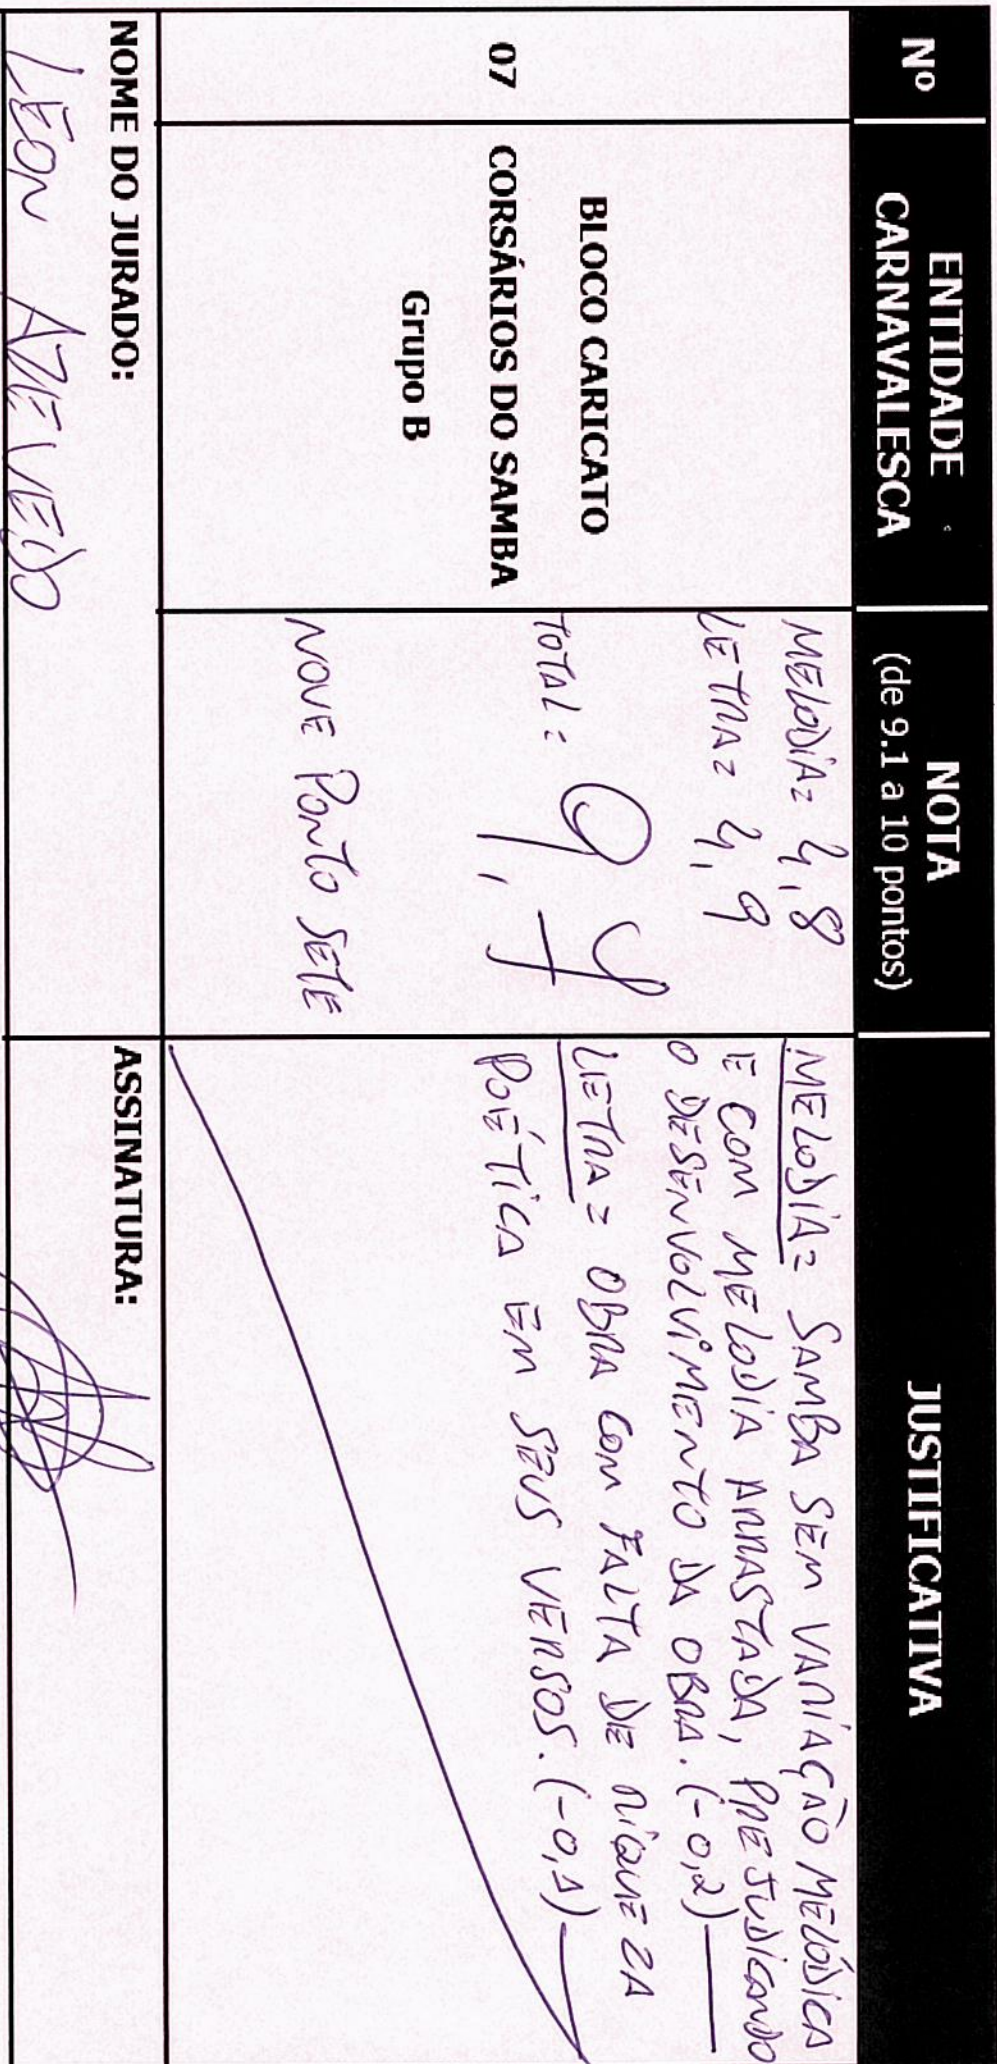 Nº
ENTIDADE
CARNAVALESCA
NOTA
(de 9.1 a 10 pontos)
JUSTIFICATIVA
07
BLOCO CARICATO
CORSÁRIOS DO SAMBA
Grupo B
MELODIA= 4,8
LETRA= 4,9
TOTAL= 9,7
NOVE PONTO SETE
MELODIA= SAMBA SEM VARIAÇÃO MELÓDICA
E COM MELODIA ARRASTADA, PREJUDICANDO
O DESENVOLVIMENTO DA OBRA. (-0,2)
LETRA= OBRA COM FALTA DE RIQUEZA
POÉTICA EM SEUS VERSOS. (-0,1)
NOME DO JURADO:
LÉON AZEVEDO
ASSINATURA: